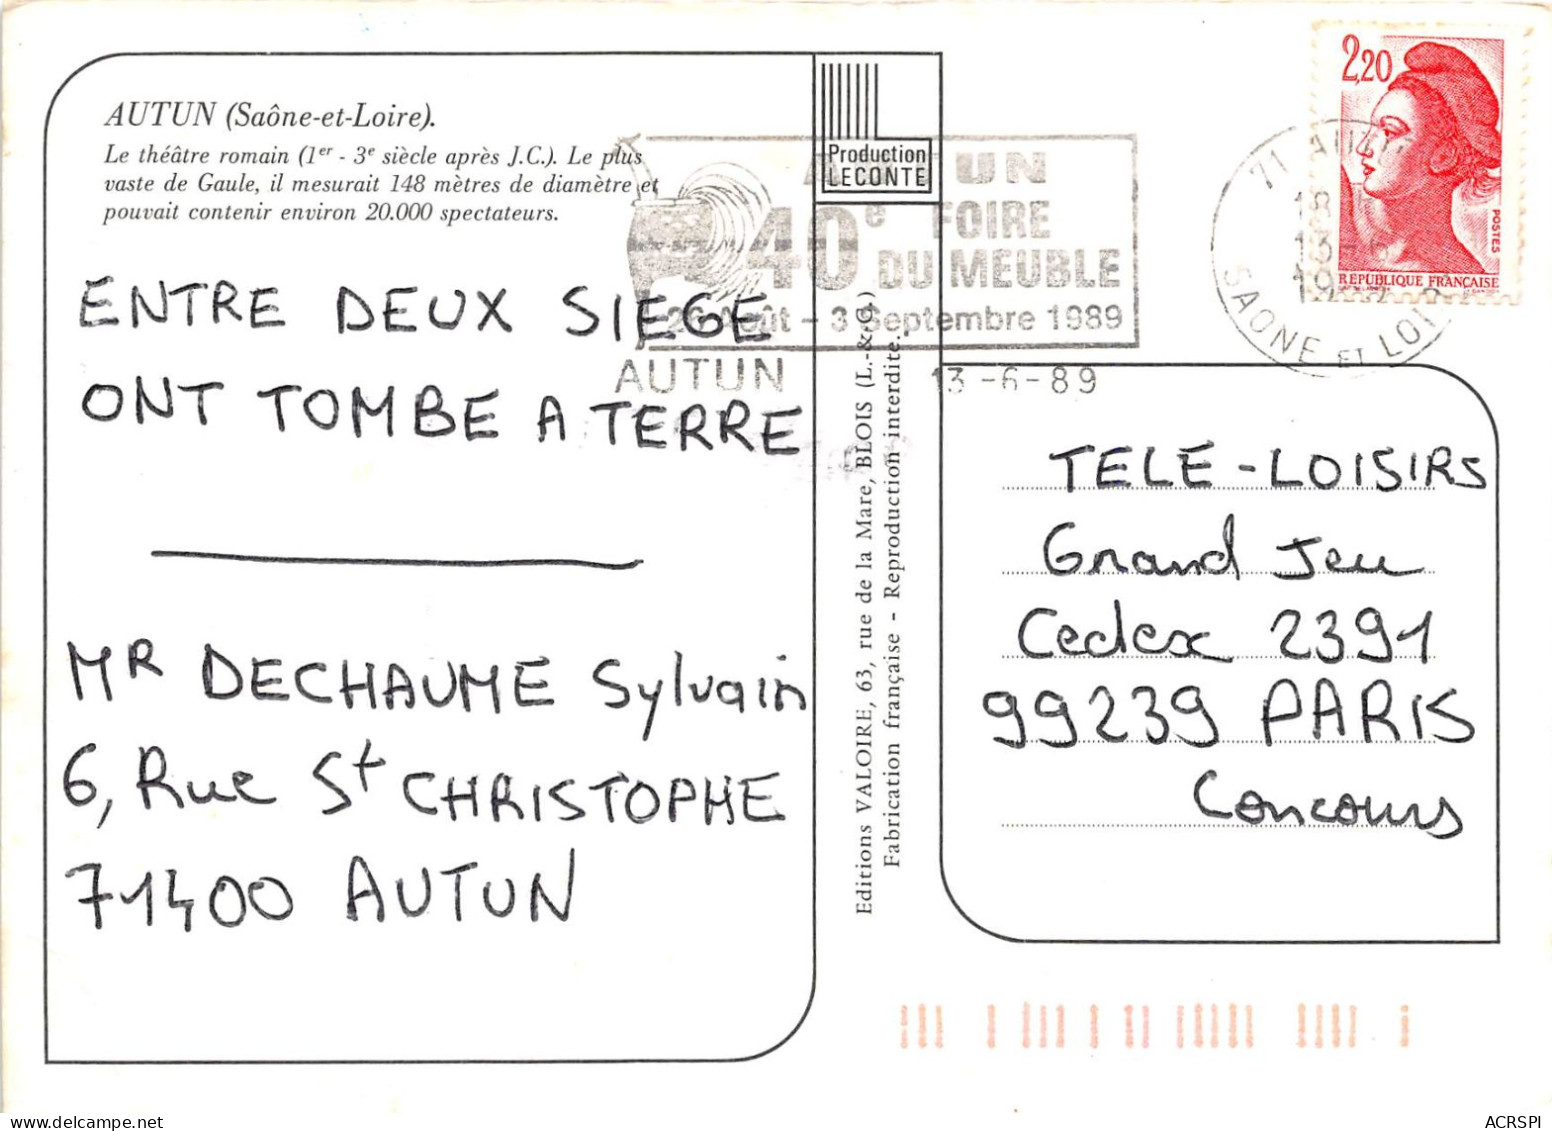 AUTUN (Saône-et-Loire).
Le théâtre romain (1er - 3e siècle après J.C.). Le plus
vaste de Gaule, il mesurait 148 mètres de diamètre et
pouvait contenir environ 20.000 spectateurs.
ENTRE DEUX SIEGE
ONT TOMBE A TERRE
MR DECHAUME Sylvain
6, Rue St CHRISTOPHE
71400 AUTUN
Production
LECONTE
AUTUN
40e FOIRE
DU MEUBLE
26 Août - 3 Septembre 1989
AUTUN 13-6-89
Editions VALOIRE, 63, rue de la Mare, BLOIS (L.-&-C.)
Fabrication française - Reproduction interdite.
2,20
POSTES
REPUBLIQUE FRANÇAISE
71 AUTUN
13-6
SAONE ET LOIRE
TELE-LOISIRS
Grand Jeu
Cedex 2391
99239 PARIS
Concours
ACRSPI